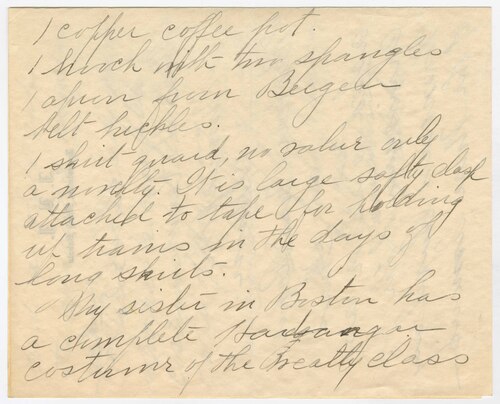 1 copper coffee pot.
1 brooch with two spangles
1 apron from Bergen
belt buckles.
1 skirt guard, no value only
a novelty. It is large safty clasp
attached to tape for holding
up trains in the days of
long skirts.
My sister in Boston has
a complete
costume of the class